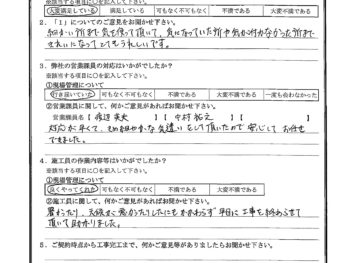 ※該当する項目に○を記入して下さい。
大変満足している 満足している 可もなく不可もなく 不満である 大変不満である
2．「1」についてのご意見をお聞かせ下さい。
細かい所まで気を使って頂いて、気になっていた所や気が付かなかった所まで
きれいになってとてもうれしいです。
3．弊社の営業職員の対応はいかがでしたか？
※該当する項目に○を記入して下さい。
①現場管理について
行き届いていた 可もなく不可もなく 不満である 大変不満である 一度も会わなかった
②営業職員に関して、何かご意見があればお聞かせ下さい。
営業職員名【渡辺 】【中村 】【 】
対応が早くて、きめ細やかな気遣いをして頂いたので安心してお任せ
できました。
4．施工員の作業内容等はいかがでしたか？
※該当する項目に○を記入して下さい。
①現場管理について
良くやってくれた 可もなく不可もなく 不満である 大変不満である
②施工員に関して、何かご意見があればお聞かせ下さい。
暑かったり、天候が悪かったりしたにもかかわらず、平日に工事を納めさせて
頂いて助かりました。
5．ご契約時点から工事完工まで、何かご意見等がありましたらお聞かせ下さい。